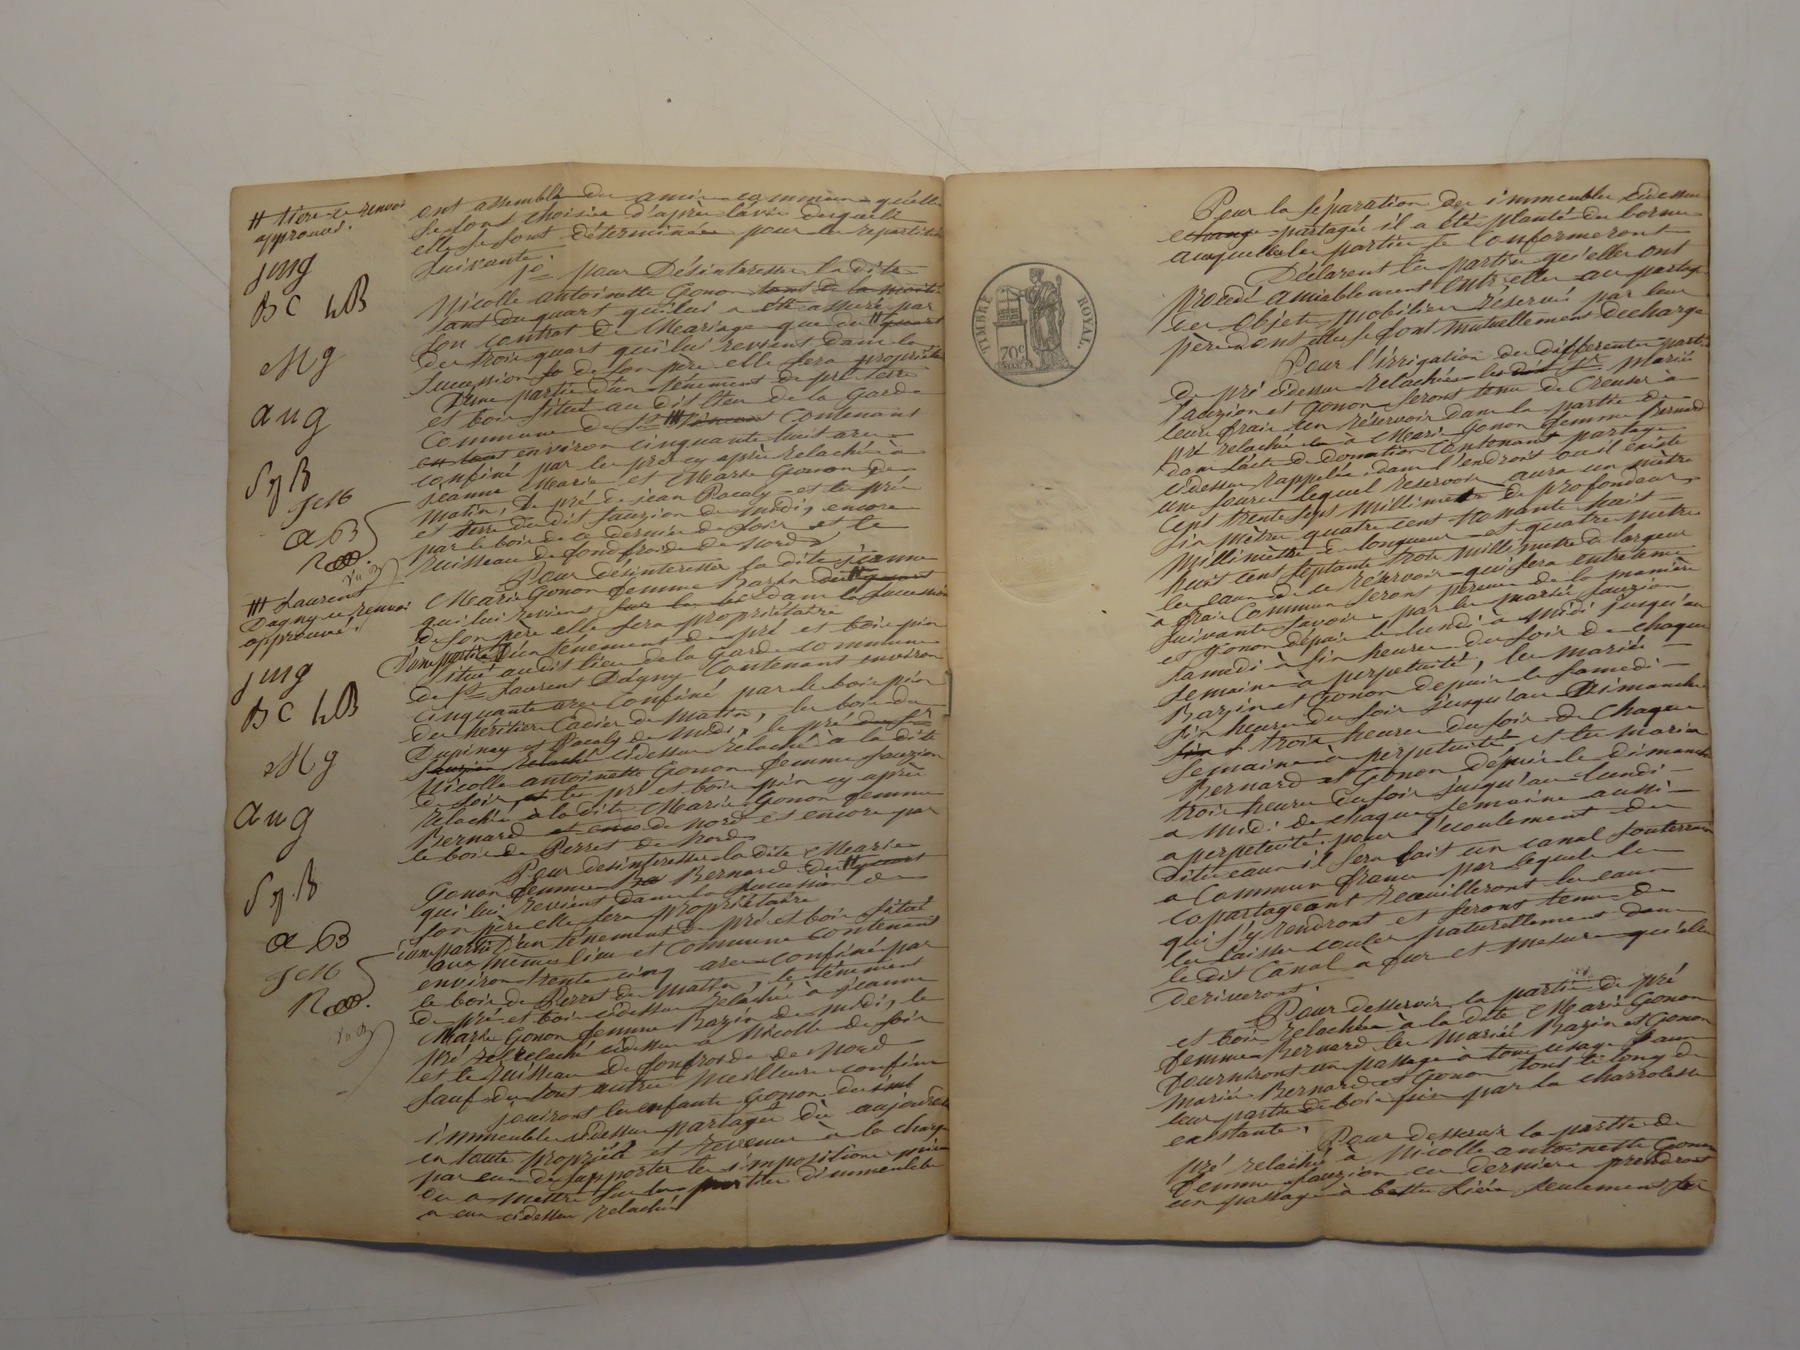 # tiers ce renvoi
approuvé.
jmg
BC hB
Mg
aug
SyB
JCM
aB
R
### Laurent
Dagny ce renvoi
approuvé.
jmg
BC hB
Mg
aug
SyB
aB
JCM
R
ont assemblé des amis communs qu'elle
se sont choisie d'après l'avis desquels
elle se sont déterminées pour la repartition
suivante.
1o pour Désintéresser la dite
Nicolle antoinette Gonon tant de la moitié
tant du quart qui lui a été assuré par
son contrat de Mariage que du # quart
des trois quart qui lui revient dans la
succession de son père elle sera propriétaire
D'une partie d'un ténement de pré terre
et bois situé au dit lieu de la Garde
Commune de St ### contenant
en tout environ cinquante huit ares
confiné par les prés cy après relachés à
jeanne Marie et Marie Gonon de
matin, le pré de jean Pacaly et le pré
et terre du dit Sauzion de midi, encore
par le bois de ce dernier de soir et le
ruisseau de fondfroide de nord
Pour désintéresser la dite jeanne
Marie Gonon femme Bazin du # quart
qui lui revient dans la succession
de son père elle sera propriétaire
d'une partie D'un ténement de pré et bois pin
situé au dit lieu de la Garde commune
de St Laurent Dagny Contenant environ
cinquante ares Confiné par le bois pin
des héritiers Cadier de Matin, les bois de
Dupinay et Pacaly de Midi, le pré
Sauzion relaché cidessus relaché à la dite
Nicolle antoinette Gonon femme Sauzion
de soir, et les pré et bois pin cy après
relachés à la dite Marie Gonon femme
Bernard et enco de nord et encore par
le bois de Perret de Nord
Pour désintéresser la dite Marie
Gonon femme Ba Bernard du # quart
qui lui revient dans la succession de
son père elle sera propriétaire
d'une partie D'un ténement de pré et bois situé
aux mêmes lieu et Commune contenant
environ trente cinq ares confiné par
le bois de Perret de Matin, le ténement
de pré et bois cidessus relaché à jeanne
Marie Gonon femme Bazin de midi, le
pré relaché cidessus à Nicolle de soir
et le ruisseau de fonfroide de Nord
Sauf de tout autres meilleurs confins
jouiront les enfants Gonon desdits
immeubles cidessus partagés dès aujourd'hui
en toute propriété et revenus à la charge
par eux de supporter les impositions mises
ou a mettre sur les parties d'immeubles
a eux cidessus relachés
TIMBRE ROYAL.
70c
Pour la séparation des immeubles cidessus
echangé partagés il a été planté des bornes
auxquelles les parties se Conformeront
Déclarent les parties qu'elles ont
procédé amiablement entr'elles au partage
des objets mobiliers réservés par leur
père dont elles se font mutuellement decharge
Pour l'irrigation des différentes partie
de pré cidessus relachées les dits St Mariés
Sauzion et Gonon seront tenu de Creuser à
leurs frais un réservoir dans la partie de
pré relachée à Marie Gonon femme Bernard
dans l'acte de Donation Contenant partage
cidessus rappellé, dans l'endroit où il existe
une source lequel reservoir aura un mètre
cent trente sept millimètres de profondeur,
six mètres quatre cent nonante huit
millimètres de longueur et quatre mètre
huit cent septante trois millimètres de largeur
les eaux de ce réservoir qui sera entretenu
a frais Commun seront prises de la manière
suivante savoir par les mariés Sauzion
et Gonon depuis le lundi à midi jusqu'au
Samedi à six heures du soir de chaque
semaine à perpétuité, les mariés
Bazin et Gonon depuis le Samedi
six heures du soir jusqu'au Dimanche
six à trois heures du soir de chaque
semaine à perpétuité, et les mariés
Bernard et Gonon depuis le dimanche
trois heures du soir jusqu'au lundi
a midi de chaque semaine aussi
a perpétuité. pour l'écoulement des
dites eaux il sera fait un canal souterrain
a Commun frais par lequel les
copartageant recueilleront les eaux
qui s'y rendront et seront tenus de
les laisser couler naturellement dans
le dit Canal a fur et mesure qu'elles
deriveront.
Pour desservir la partie de pré
et bois relachée à la dite Marie Gonon
femme Bernard les Mariés Bazin et Gonon
fourniront un passage à tous usage aux
mariés Bernard et Gonon tout le long de
leur partie de bois pin par la charrolesse
existante.
Pour desservir la partie de
pré relaché à Nicolle antoinette Gonon
femme Sauzion ces derniers prendront
un passage à bette liée seulement sur